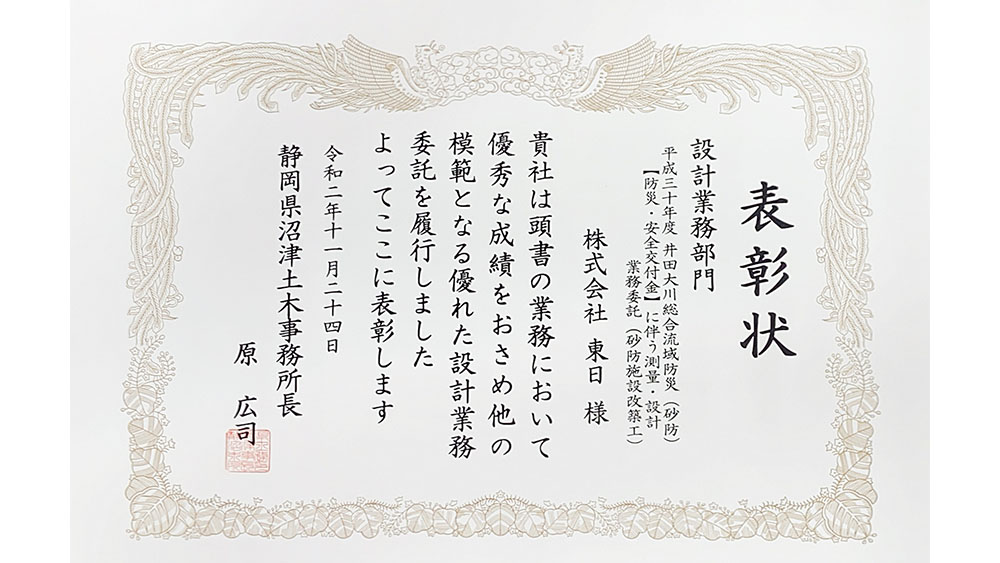 表彰状
設計業務部門
平成三十年度 井田大川総合流域防災（砂防）
【防災・安全交付金】に伴う測量・設計
業務委託（砂防施設改築工）
株式会社 東日 様
貴社は頭書の業務において
優秀な成績をおさめ他の
模範となる優れた設計業務
委託を履行しました
よってここに表彰します
令和二年十一月二十四日
静岡県沼津土木事務所長
原 広司